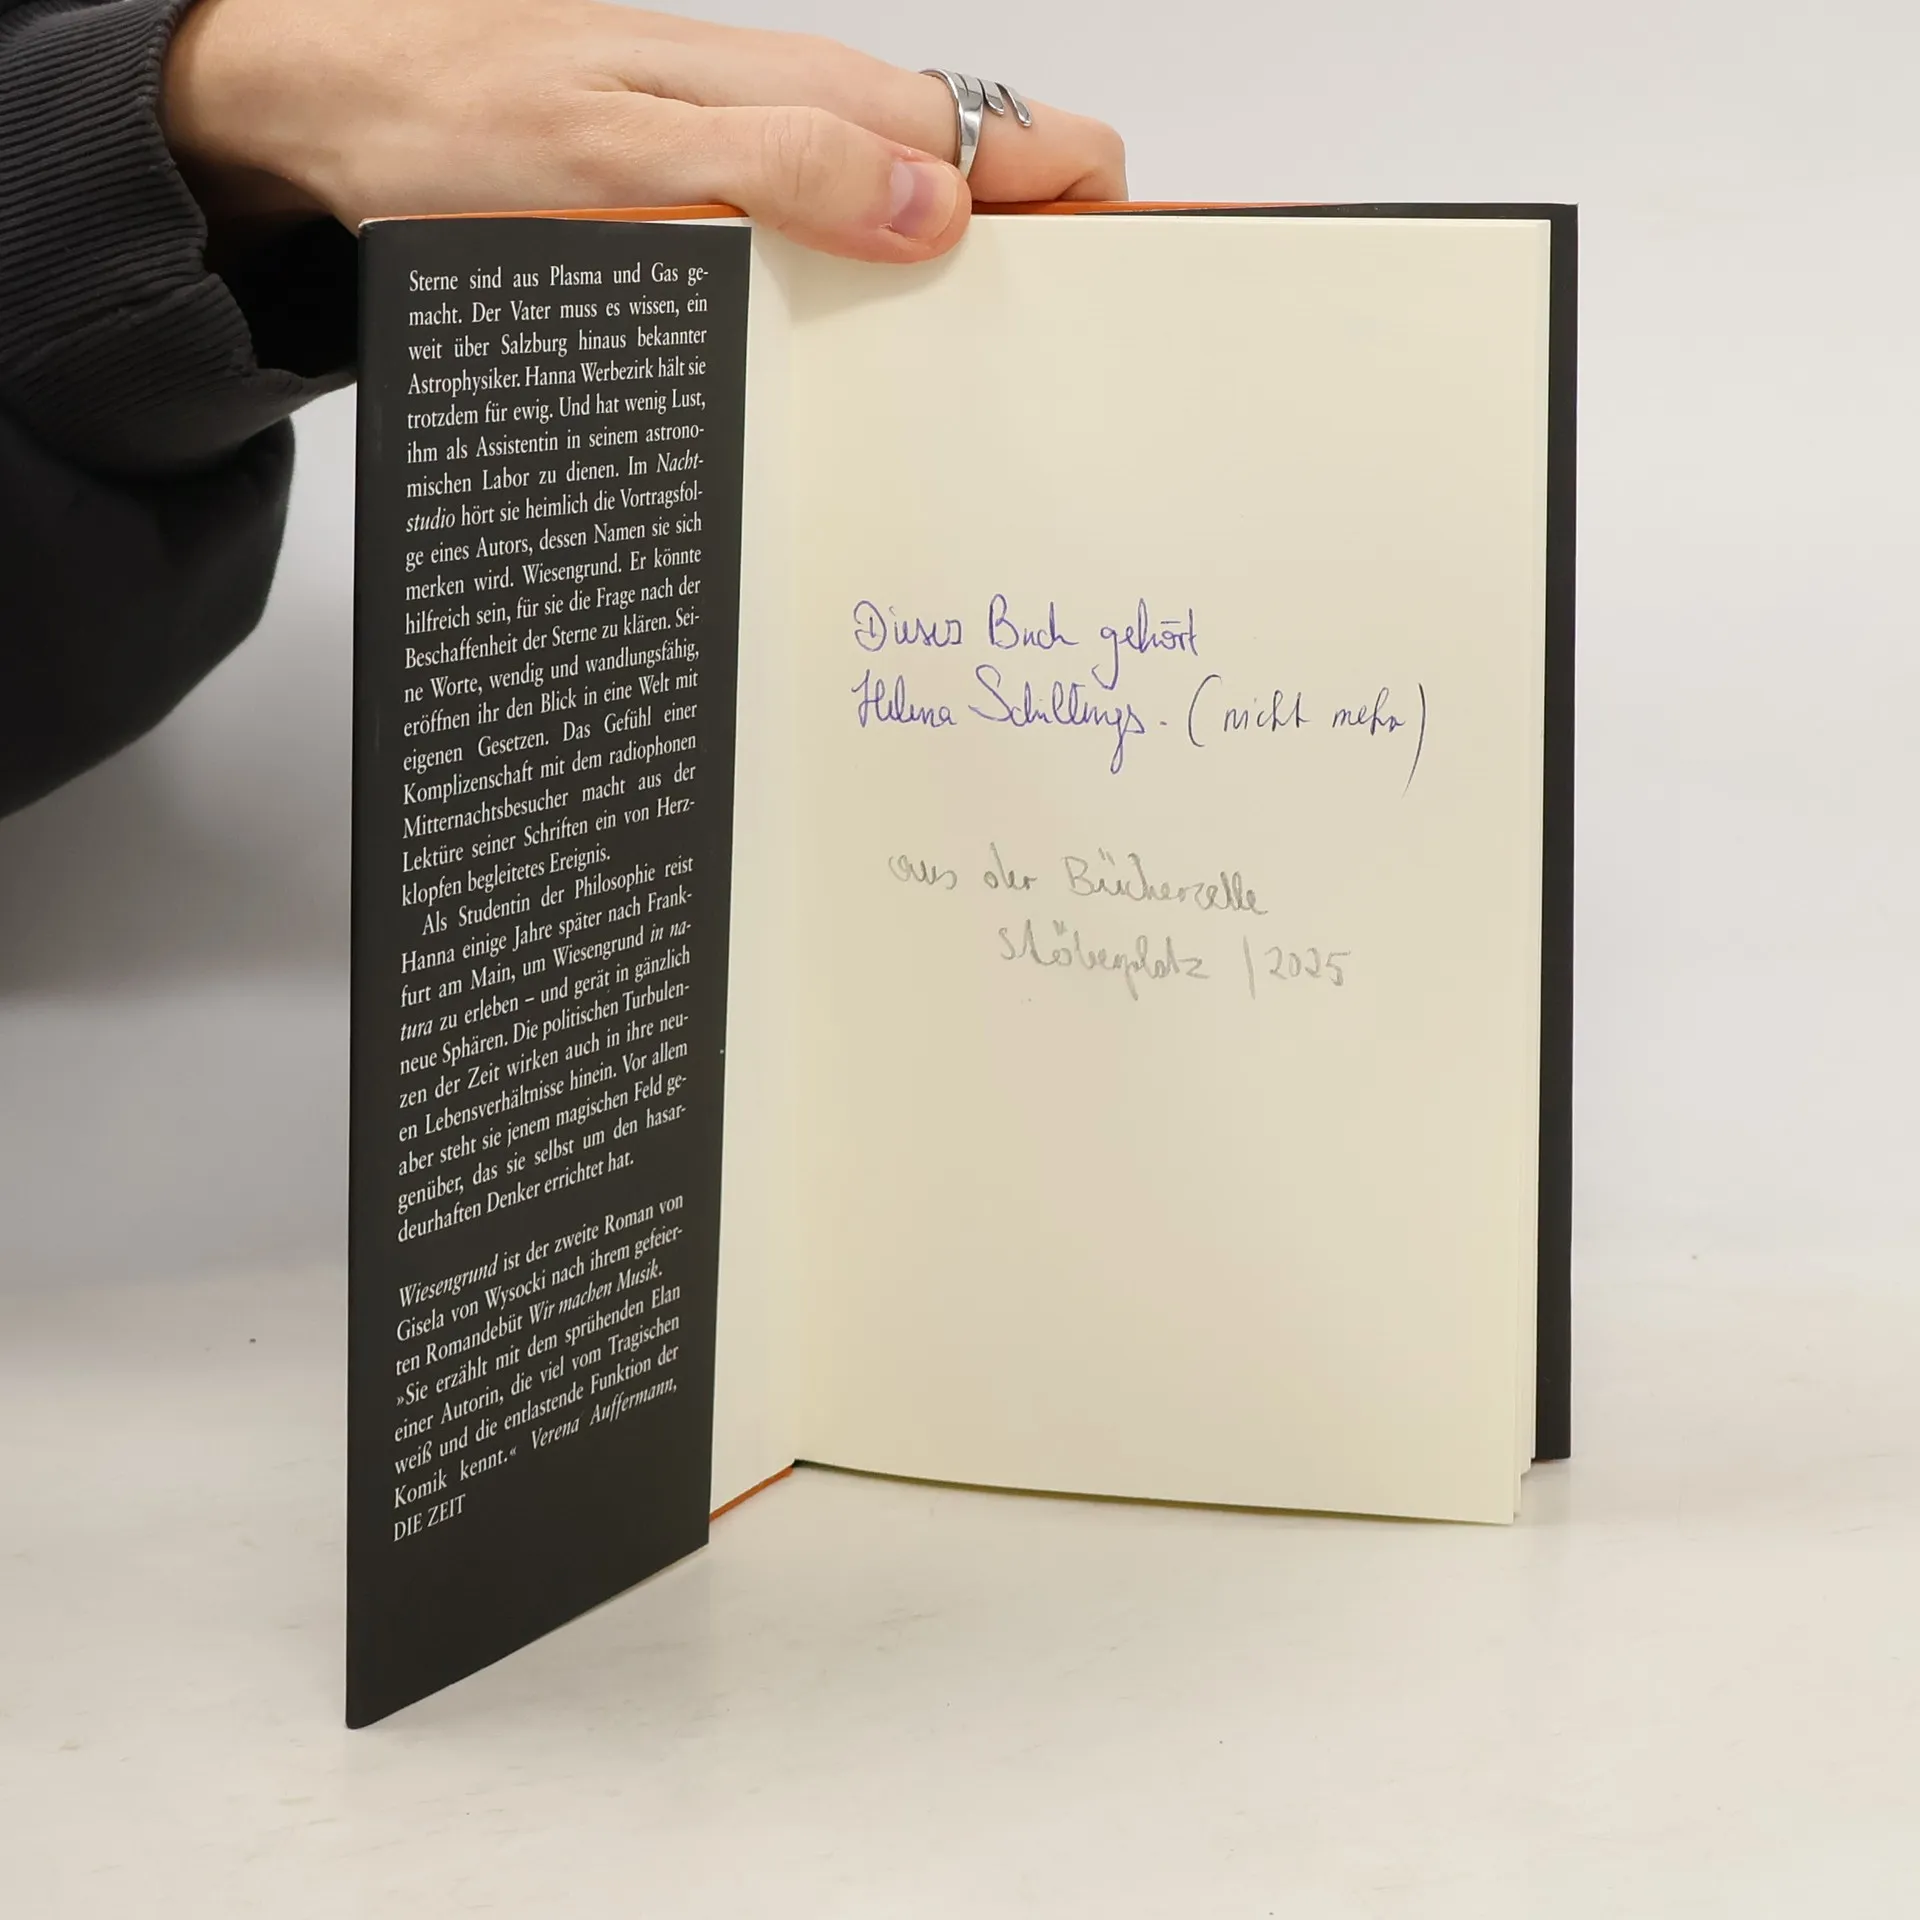 Sterne sind aus Plasma und Gas ge-
macht. Der Vater muss es wissen, ein
weit über Salzburg hinaus bekannter
Astrophysiker. Hanna Werbezirk hält sie
trotzdem für ewig. Und hat wenig Lust,
ihm als Assistentin in seinem astrono-
mischen Labor zu dienen. Im Nacht-
studio hört sie heimlich die Vortragsfol-
ge eines Autors, dessen Namen sie sich
merken wird. Wiesengrund. Er könnte
hilfreich sein, für sie die Frage nach der
Beschaffenheit der Sterne zu klären. Sei-
ne Worte, wendig und wandlungsfähig,
eröffnen ihr den Blick in eine Welt mit
eigenen Gesetzen. Das Gefühl einer
Komplizenschaft mit dem radiophonen
Mitternachtsbesucher macht aus der
Lektüre seiner Schriften ein von Herz-
klopfen begleitetes Ereignis.
Als Studentin der Philosophie reist
Hanna einige Jahre später nach Frank-
furt am Main, um Wiesengrund in na-
tura zu erleben – und gerät in gänzlich
neue Sphären. Die politischen Turbulen-
zen der Zeit wirken auch in ihre neu-
en Lebensverhältnisse hinein. Vor allem
aber steht sie jenem magischen Feld ge-
genüber, das sie selbst um den hasar-
deurhaften Denker errichtet hat.
Wiesengrund ist der zweite Roman von
Gisela von Wysocki nach ihrem gefeier-
ten Romandebüt Wir machen Musik.
»Sie erzählt mit dem sprühenden Elan
einer Autorin, die viel vom Tragischen
weiß und die entlastende Funktion der
Komik kennt.« Verena Auffermann,
DIE ZEIT
Dieses Buch gehört
Helena Schillings. (nicht mehr)
aus der Bücherzelle
Stöberplatz / 2025